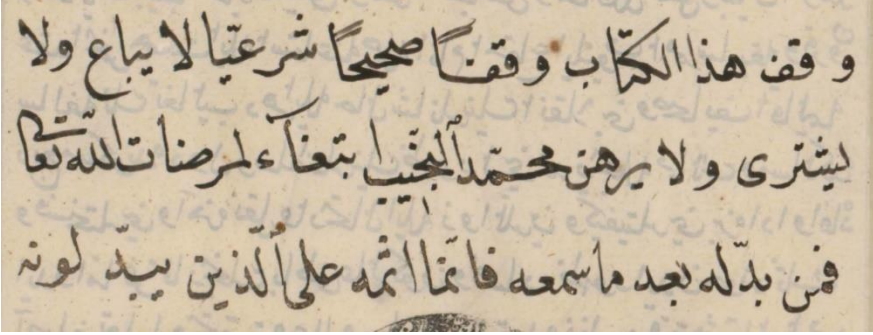 وقف هذا الكتاب وقفاً صحيحاً شرعيّا لا يباع ولا
يشترى ولا يرهن محمّد النجيب ابتغآء لمرضات اللّه تعالى
فمن بدّله بعد ما سمعه فانّما اثمه على الّذين يبدّلونه